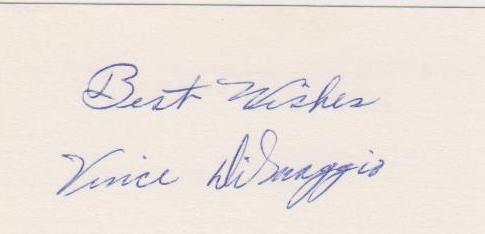 Best Wishes
Vince DiMaggio